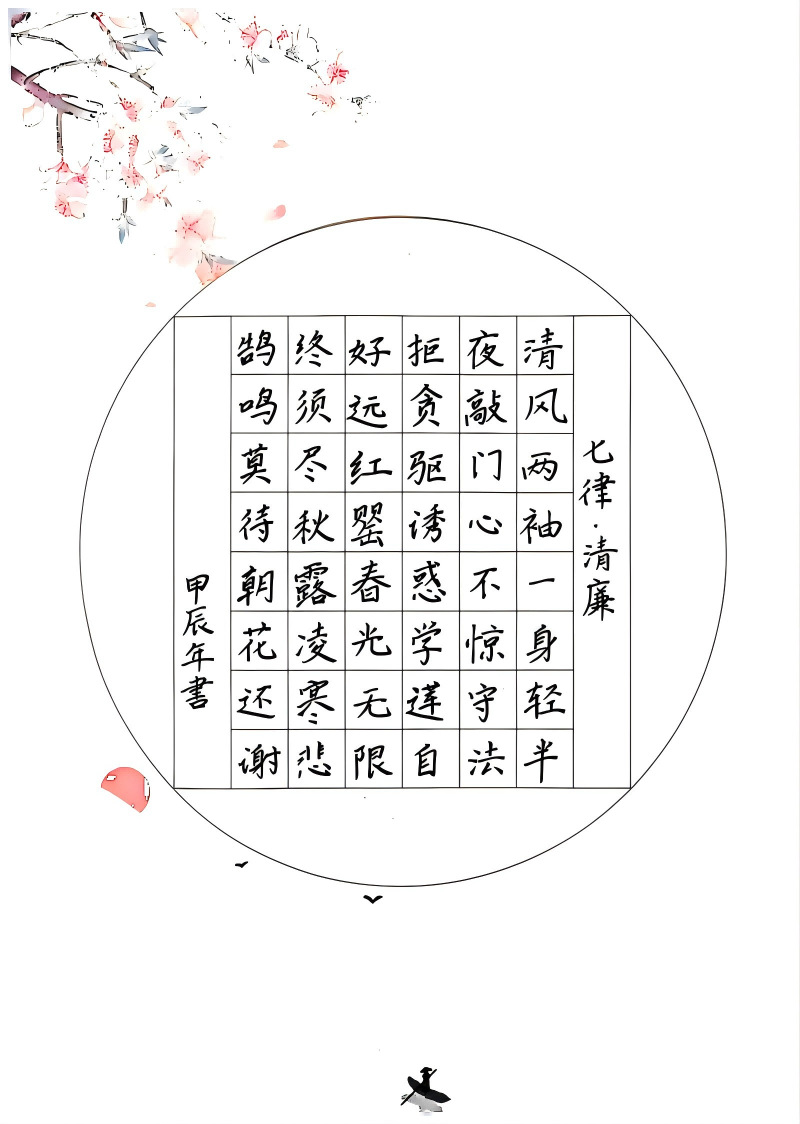 七律·清廉
清风两袖一身轻半
夜敲门心不惊守法
拒贪驱诱惑学莲自
好远红罂春光无限
终须尽秋露凌寒悲
鹄鸣莫待朝花还谢
甲辰年書